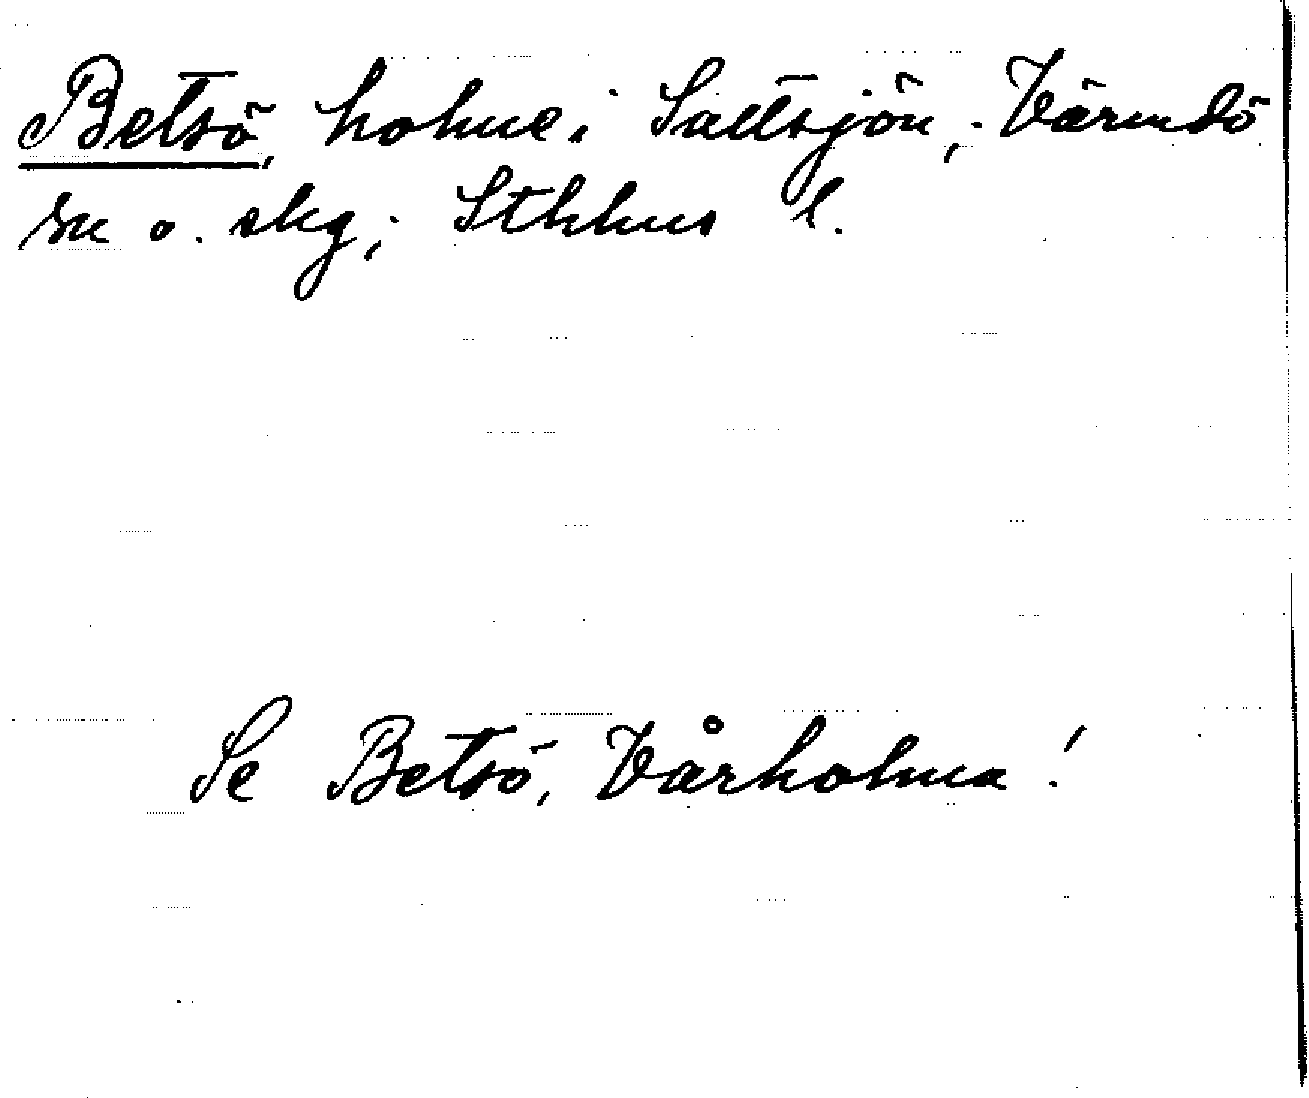 Betsö, holme i Saltsjön, Värmdö
sn o. skg; Sthlms l.
Se Betsö, Vårholma!